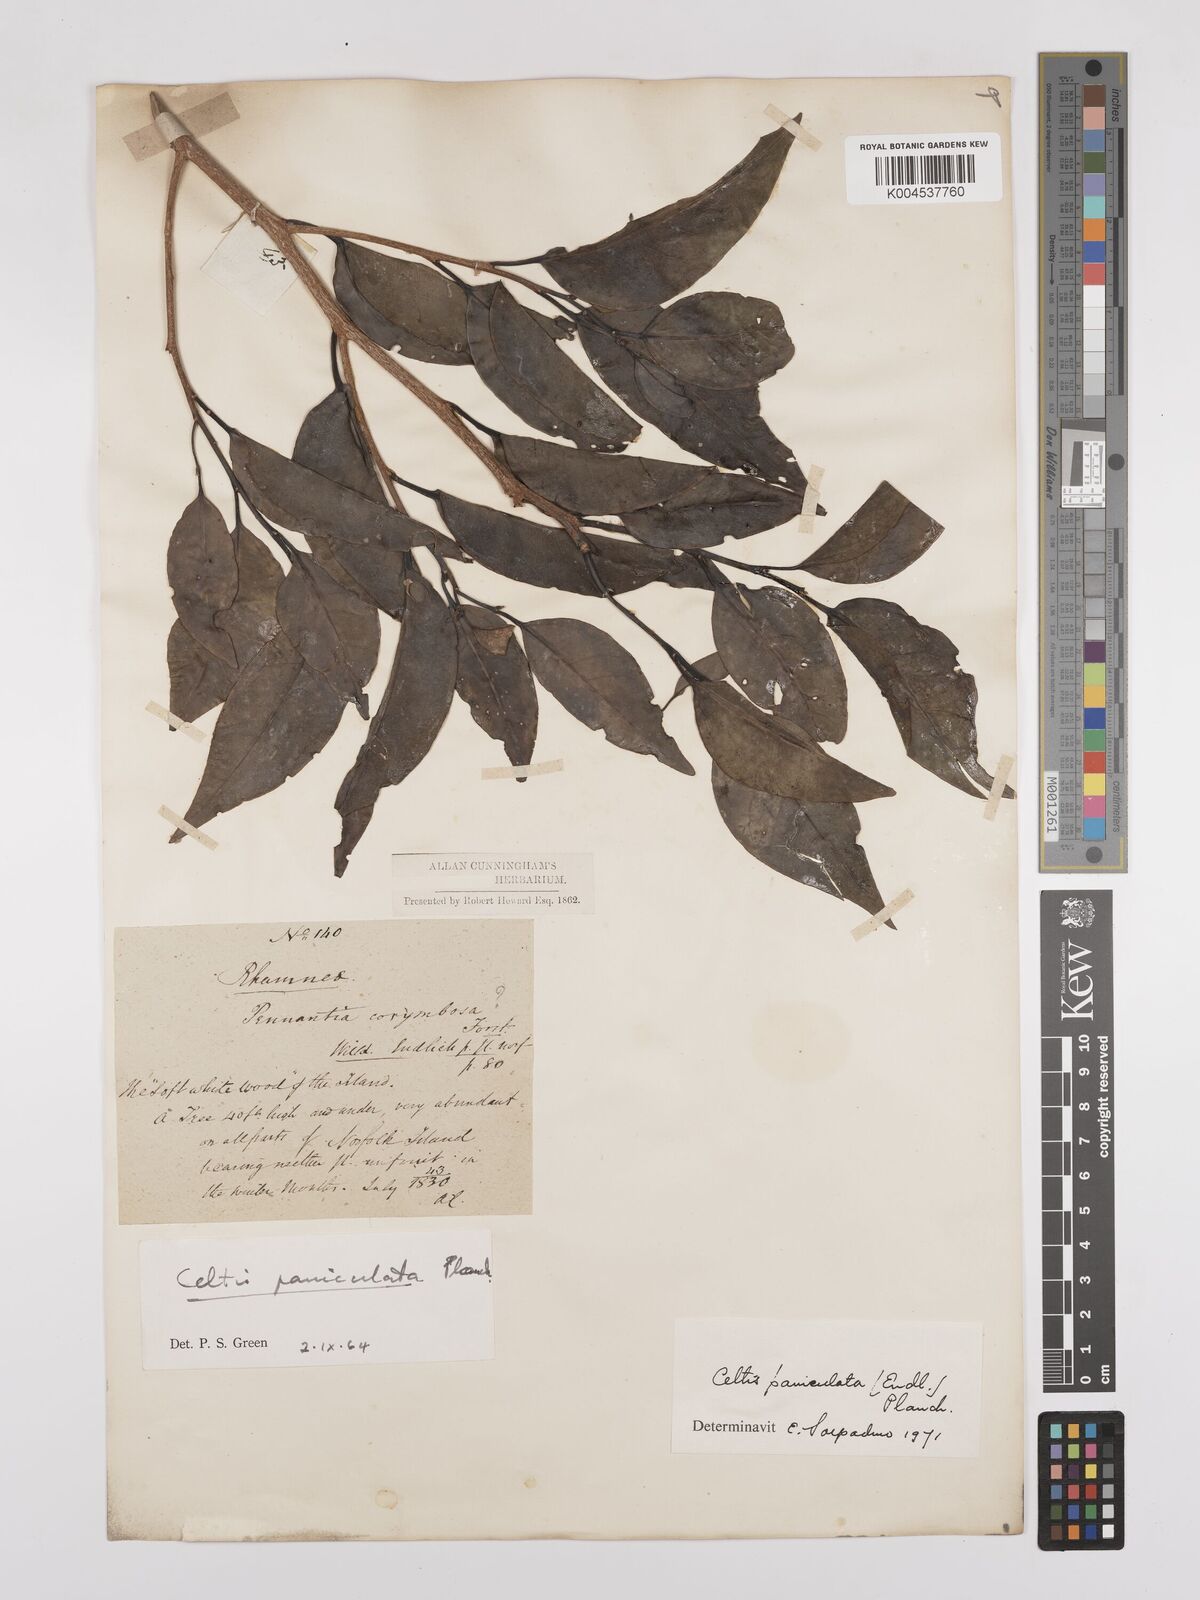 ROYAL BOTANIC GARDENS KEW
K004537760
43
ALLAN CUNNINGHAM'S
HERBARIUM.
Presented by Robert Heward Esq. 1862.
No. 140
Rhamneæ.
Pennantia corymbosa?
Forst.
Willd. Endlich p. fl. norf
p. 80
The "Soft white wood" of the Island.
A Tree 40 ft. high and under, very abundant
on all parts of Norfolk Island
bearing neither fl. nor fruit in
the winter months. July 43/1830
A.C.
Celtis paniculata Planch.
Det. P. S. Green 2.ix.64
Celtis paniculata (Endl.)
Planch.
Determinavit E. Soepadmo 1971
inches
centimeters
Don Williams
Density
M001261
Kew
Royal Botanic Gardens
copyright reserved
cm
0 1 2 3 4 5 6 7 8 9 10